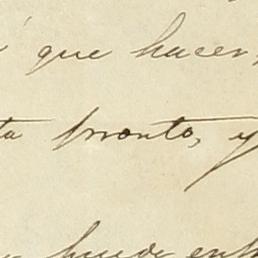 que hacer,
ta pronto, y
puede ent